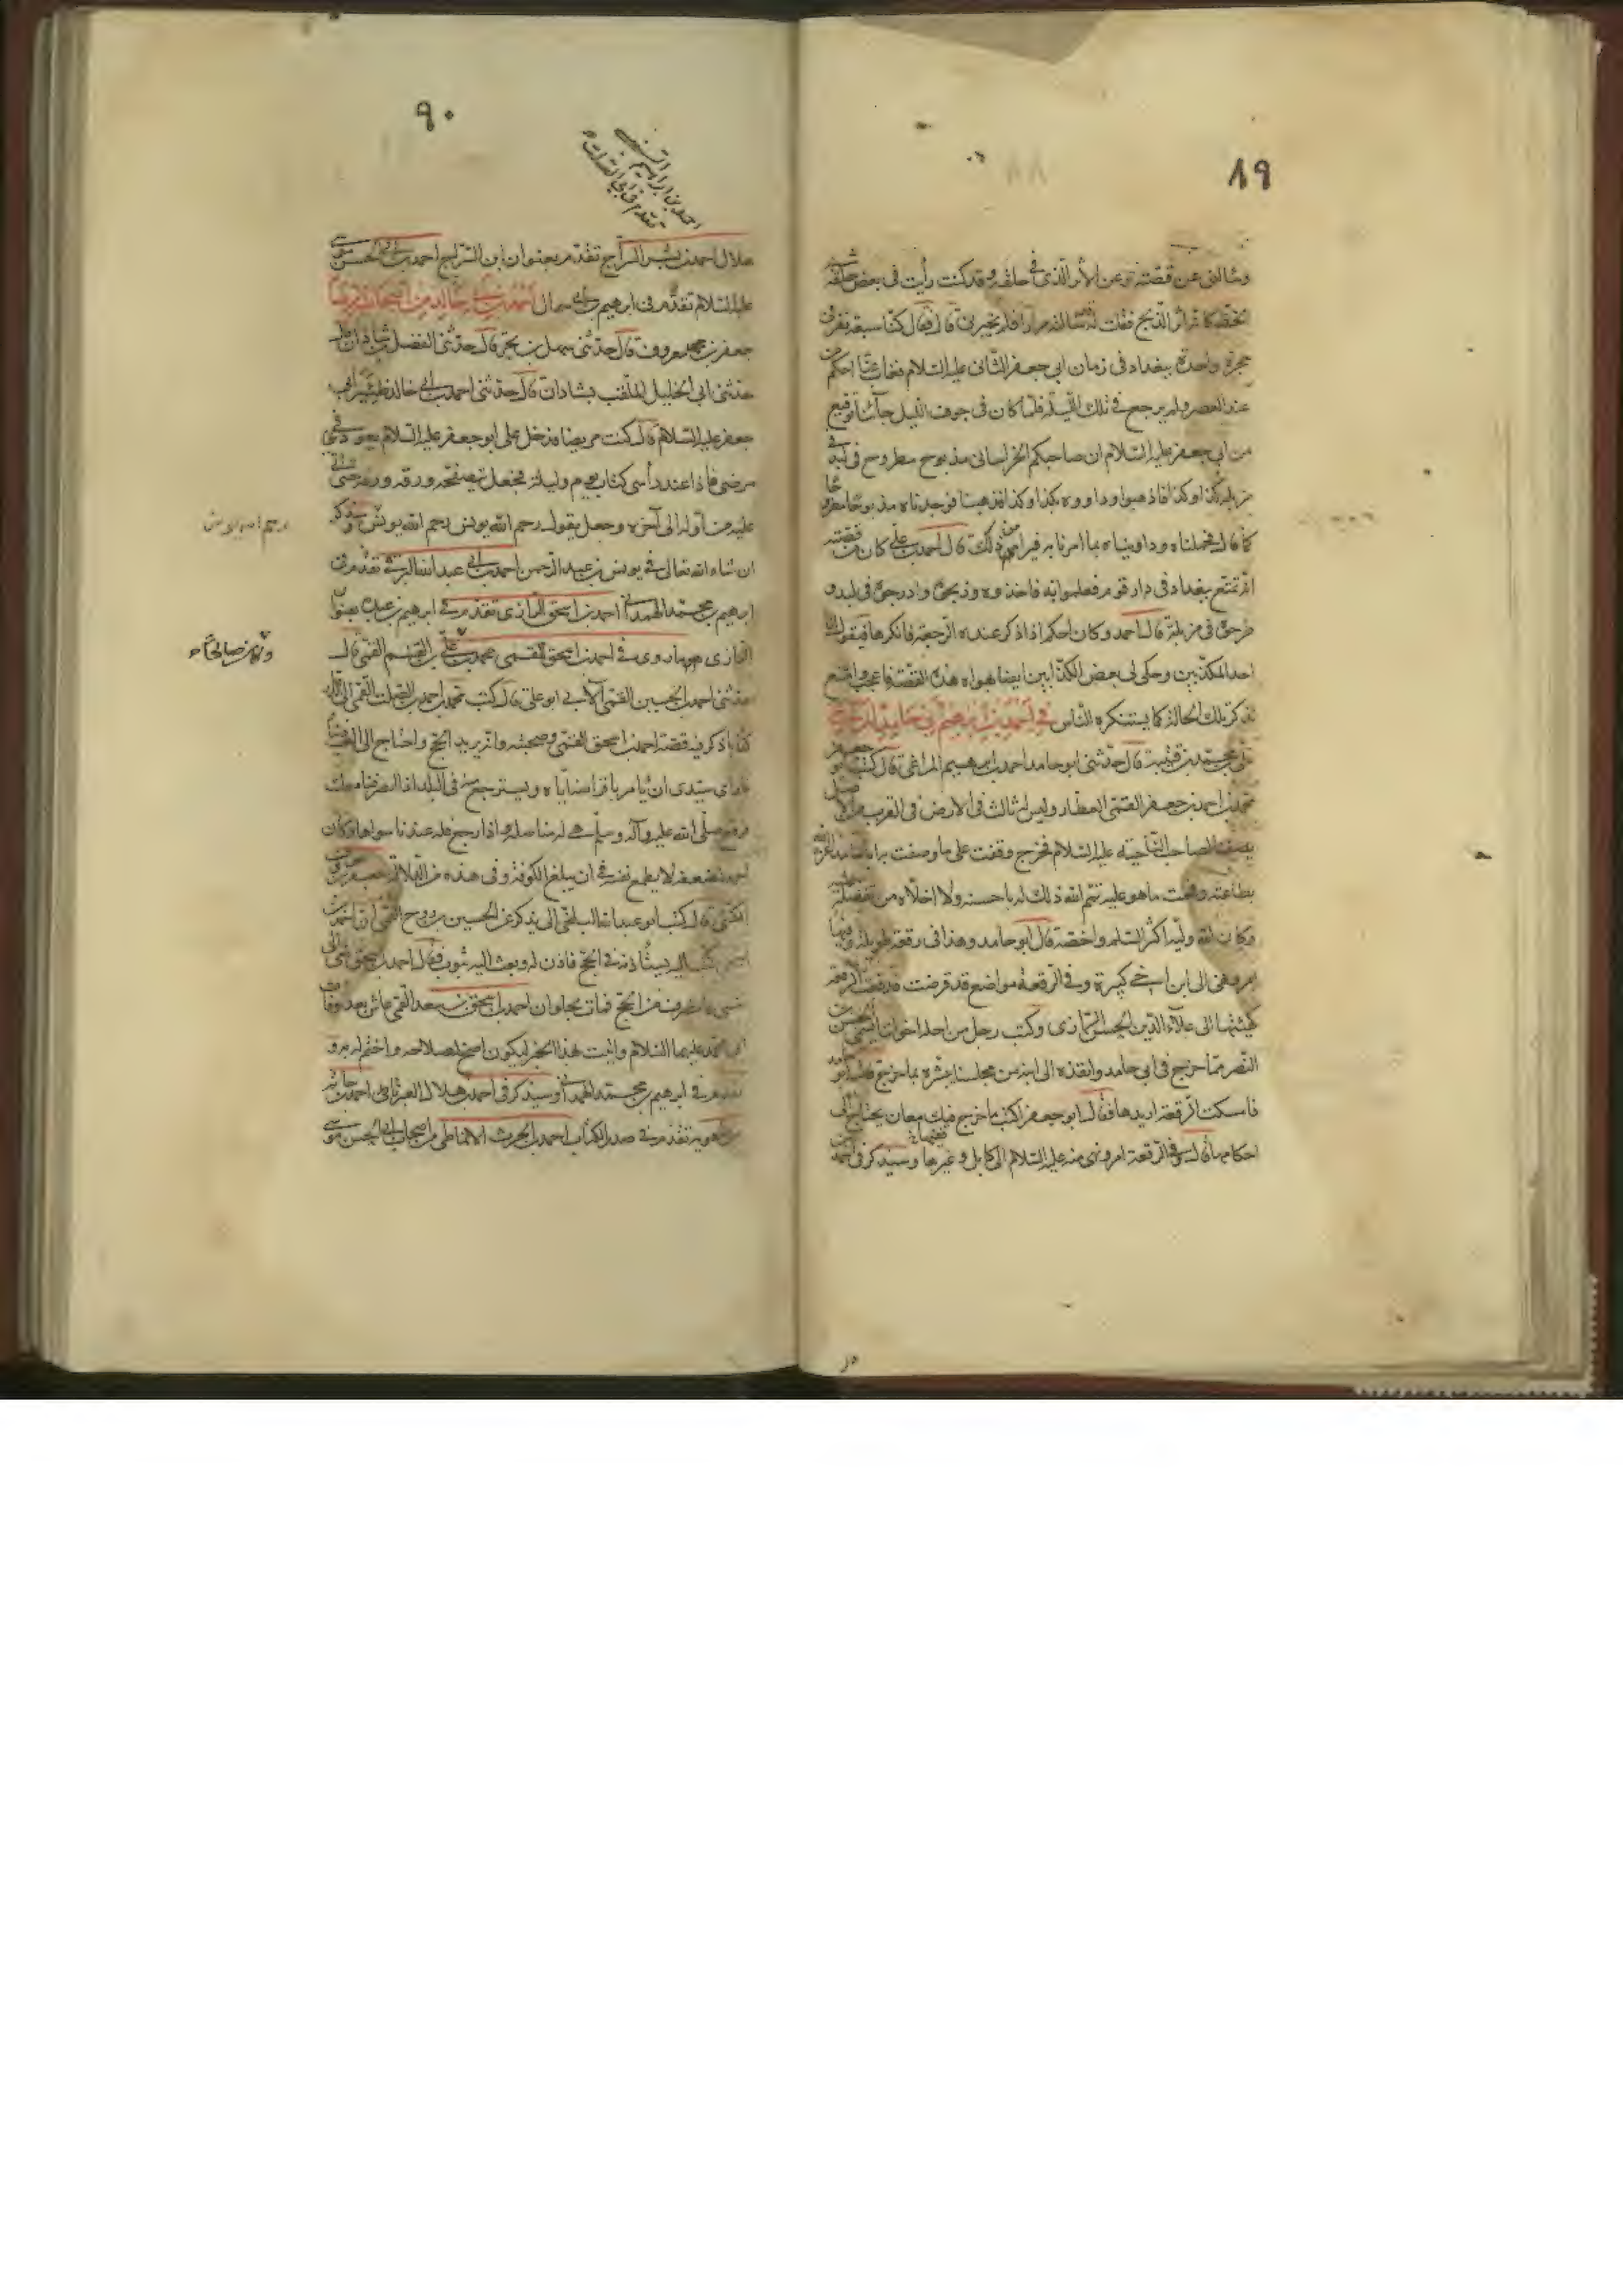 ٨٩
وسألنى عن قصته وعن الأثر الذى فى حلقه وقد كنت رأيت فى بعض حلقه
الخط كان اثر الذبح فقلت له سألته مرارا فلم يخبرنى قال فقال كنا سبعة نفر فى
حجرة واحدة ببغداد فى زمان ابى جعفر الثانى عليه السلام فغاب عنا احكم من
عند العصر ولم يرجع فى تلك الليلة فلما كان فى جوف الليل جاءنا توقيع
من ابى جعفر عليه السلام ان صاحبكم الخراسانى مذبوح مطروح فى لبد فى
مزبلة كذا وكذا فاذهبوا وداووه بكذا وكذا فذهبنا فوجدناه مذبوحا مطروحا
كما قال فحملناه وداويناه بما امرنا به فبرأ من ذلك قال احمد بن على كان من قصته
انه تمتع ببغداد فى دار قوم فعلموا به فاخذوه وذبحوه وادرجوه فى لبد و
طرحوه فى مزبلة قال احمد وكان احكم اذا ذكر عنده الرجعة فانكرها فيقول انا
احد المكذبين وحكى لى بعض الكذابين ايضا بهراه هذه القصة فاعجب وامتنع
بذكر تلك الحالة كما يستنكره الناس فى احمد بن ابراهيم ابى حامد المراغى
على بن محمد بن قتيبة قال حدثنى ابو حامد احمد بن ابرهيم المراغى قال كتب ابو جعفر
محمد بن احمد بن جعفر القمى العطار وليس له ثالث فى الارض فى القرب من الاصل
يصفنا لصاحب الناحية عليه السلام فخرج وقفت على ما وصفت به ابا حامد اعزه الله
بطاعته وفهمت ما هو عليه تمم الله ذلك له باحسنه ولا اخلاه من تفضله عليه
وكان الله وليه اكثر السلم واخصه قال ابو حامد وهذا فى رقعة طويلة وفيها
امر ونهى الى ابن اخى كبيرة وفى الرقعة مواضع قد قرضت فدفعت الرقعة
كهيئتها الى علاء الدين بن الحسن الرازى وكتب رجل من اجله اخواننا يسمى الحسن بن
النضر مما خرج فى ابى حامد وانفذه الى ابنه من مجلسنا يبشره بما خرج
فامسكت الرقعة اريدها فقال ابو جعفر اكتب ما خرج فيك ففيها معان يحتاج الى
احكامها قال وفى الرقعة امر ونهى منه عليه السلام الى كابل وغيرها وسيذكر فى احمد بن
٩٠
احمد بن ابراهيم السنسنى
تقدم فى ابى الصلت
هلال احمد بن بشر السراج تقدم بعنوان ابن السراج احمد بن ابى الحسن موسى
عليه السلام تقدم فى ابرهيم بن ابى سمال احمد بن ابى خالد من اصحاب الرضا
جعفر بن معروف قال حدثنى سهل بن بحر قال حدثنى الفضل بن شاذان قال
حدثنى ابى الخليل الملقب بشاذان قال حدثنى احمد بن ابى خالد ظئر ابى
جعفر عليه السلام قال كنت مريضا فدخل على ابو جعفر عليه السلام يعودنى فى
مرضى فاذا عند رأسى كتاب يوم وليلة فجعل يتصفحه ورقة ورقة حتى اتى
عليه من اوله الى آخره وجعل يقول رحم الله يونس رحم الله يونس وسيذكر
ان شاء الله تعالى فى يونس بن عبد الرحمن احمد بن ابى عبد الله البرقى تقدم فى
ابرهيم بن محمد الهمدانى احمد بن اسحق الرازى تقدم فى ابرهيم بن عبده بعنوان
الرازى ما روى فى احمد بن اسحق القمى محمد بن على بن القسم القمى قال
حدثنى احمد بن الحسين القمى الآبى ابو على قال كتب محمد بن احمد بن الصلت القمى الى الدار
كتابا ذكر فيه قصة احمد بن اسحق القمى وصحبته وانه يريد الحج واحتاج الى الف دينار
فان رأى سيدى ان يأمر باقراضه اياه ويسترجع منه فى البلد اذا انصرفنا فعل
فوقع صلى الله عليه وآله وسلم هى له منا صلة واذا رجع فله عندنا سواها وكان
احمد لضعفه لا يطمع نفسه فى ان يبلغ الكوفة وفى هذه من الدلالة جعفر بن معروف
الكشى قال كتب ابو عبد الله البلخى الى يذكر عن الحسين بن روح القمى ان احمد بن
اسحق كتب اليه يستأذنه فى الحج فاذن له وبعث اليه بثوب فقال احمد بن اسحق نعى الى
نفسى فانصرف من الحج فمات بحلوان احمد بن اسحق بن سعد القمى عاش بعد وفاة
ابى محمد عليهما السلام واتيت بهذا الخبر ليكون اصح لصلاحه وما ختم له به و
تقدم فى ابرهيم بن محمد الهمدانى وسيذكر فى احمد بن هلال العبرتائى احمد بن حاتم بن
ماهويه تقدم فى صدر الكتاب احمد بن الحرث الانماطى من اصحاب ابى الحسن موسى
رحم الله يونس